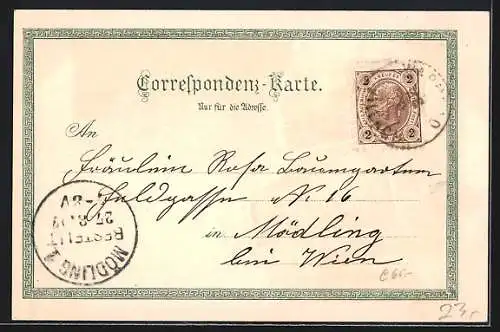 Correspondenz-Karte.
Nur für die Adresse.
2 2
An
Fräulein Rosa Baumgartem
Feldgasse N. 16
in Mödling
bei Wien
BESTELLT
MÖDLING
23,-